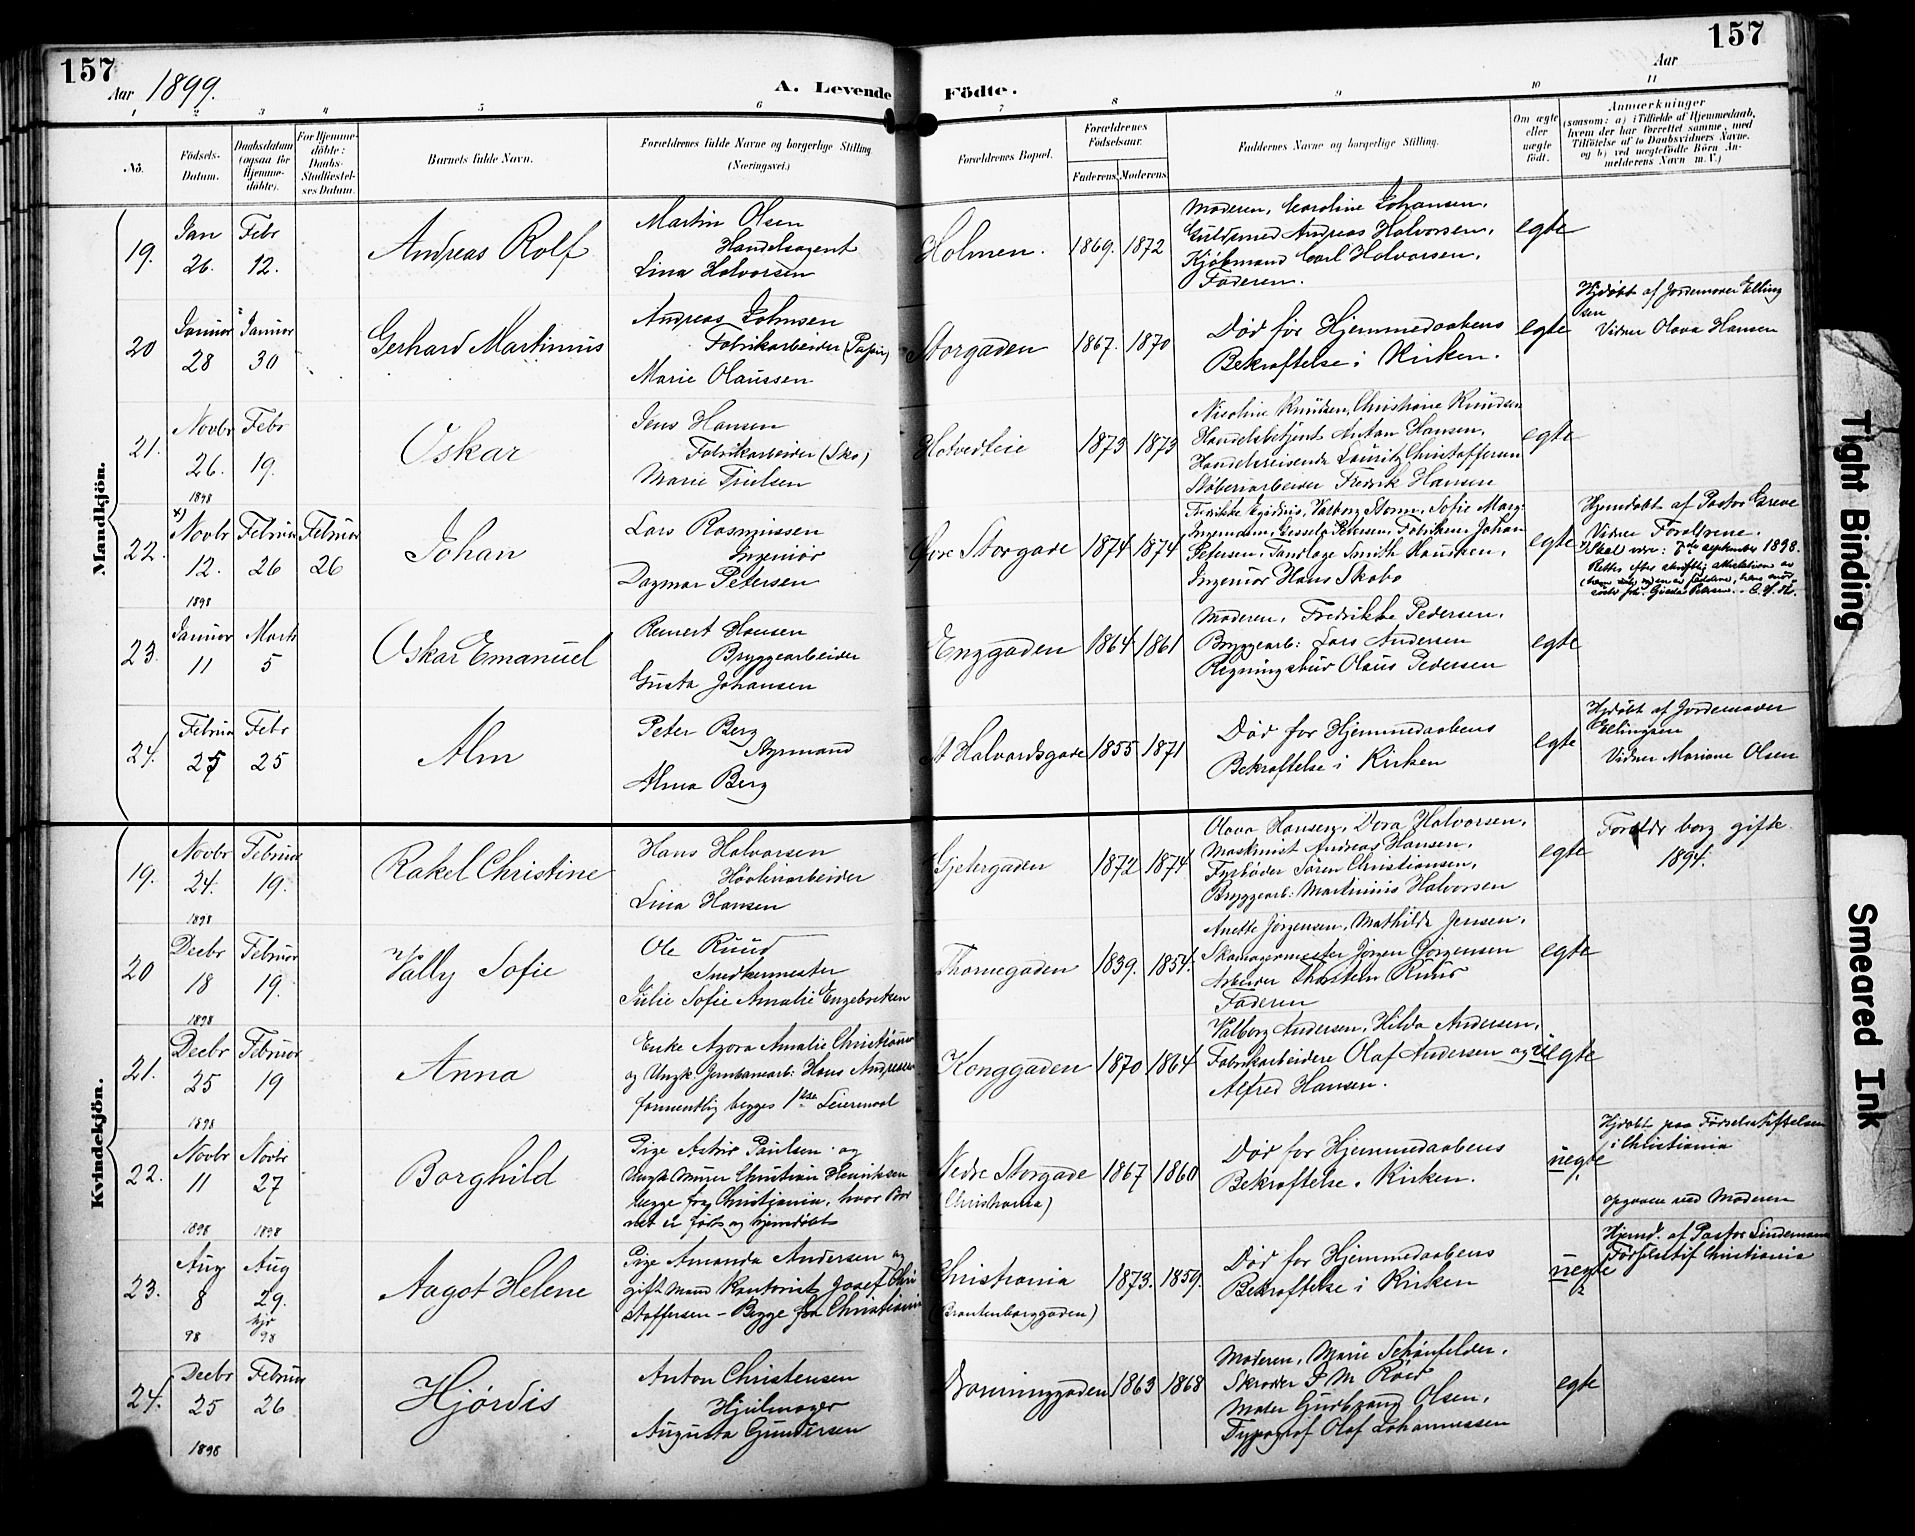 157
Aar 1899.
A. Levende Födte.
Aar
157
1 2 3 4 5 6 7 8 9 10 11
No.
Födsels-
Datum.
Daabsdatum
(ogsaa for
Hjemme-
döbte).
For Hjemme-
döbte:
Daabs-
Stadfæstel-
ses Datum.
Barnets fulde Navn.
Forældrenes fulde Navne og borgerlige Stilling
(Næringsvei.)
Forældrenes Bopæl.
Forældrenes
Födselsaar.
Faderens Moderens
Faddernes Navne og borgelige Stilling.
Om ægte
eller
uægte
født.
Anmærkninger
(saasom: a) i Tilfælde af Hjemmedaab,
hvem der har forrettet samme, med
Tilföielse af to Daabsvidners Navne.
og b) ved uægtefödte Börn An-
melderens Navn m. V.)
Mandkjön.
19.
Jan
26.
Febr
12.
Andreas Rolf
Martin Olsen
Handelsagent
Lina Halvorsen
Holmen.
1869. 1872
Moderen, Caroline Johansen,
Guldsmed Andreas Halvorsen,
Kjøbmand Carl Halvorsen,
Faderen.
egte
20
Januar
28
Januar
30
Gerhard Martinius
Andreas Johnsen
Fabrikarbeider (Papir)
Marie Olaussen
Storgaden
1867. 1870
Død før Hjemmedaabens
Bekræftelse i Kirken.
egte
Hjdøbt af Jordemoder Elling
sen
Vidner Olava Hansen
21.
Novbr
26.
1898
Febr
19.
Oskar
Jens Hansen
Fabrikarbeider (Sko)
Marie Trulsen
Hotvedteie
1873 1873
Nicoline Knudsen, Christiane Knudsen
Handelsbetjent Anton Hansen,
Handelsreisende Lauritz Christoffersen
Støberiarbeider Fredrik Hansen
egte
22.
x)
Novbr
12.
1898
Februar
26
Februar
26
Johan
Lars Rasmussen
Ingeniør
Dagmar Petersen
Øvre Storgade
1874 1874
Fredrikke Egidius, Valborg Storm, Sofie Marg.
Petersen, Tandlæge Smith Housken,
Ingeniør Hans Skabo
egte
Hjemdøbt af Pastor Greve
Vidner Forældrene.
x) Skal være: 7de september 1898.
Rettes efter skriftlig attestation av
23.
Januar
11
Marts
5
Oskar Emanuel
Reinert Hansen
Bryggearbeider
Gusta Johansen
Enggaden
1864 1861
Moderen, Fredrikke Pedersen,
Bryggearb: Lars Andersen
Regningsbud Olaus Pedersen
egte
24.
Februar
25
Febr
25
Alm
Peter Berg
Styrmand
Alma Berg
St Halvardsgade
1855 1871
Død for Hjemmedaabens
Bekræftelse i Kirken
egte
Hjdøbt af Jordemoder
Ellingsen
Vidner Mariane Olsen
Kvindekjön.
19.
Novbr
24.
1898
Februar
19.
Rakel Christine
Hans Halvorsen
Høvleriarbeider
Lina Hansen
Gjetergaden
1872 1874
Olava Hansen, Dora Halvorsen,
Maskinist Andreas Hansen,
Fyrbøder Søren Christiansen,
Bryggearb: Martinius Halvorsen
egte
Foreldr borg gifte
1894.
20
Decbr
18
1898
Februar
19.
Vally Sofie
Ole Ruud
Snedkermester
Julie Sofie Amalie Engebretsen
Thornegaden
1839. 1854.
Anette Jørgensen, Mathilde Jensen,
Skomagermester Jørgen Jørgensen
Arbeider Thorstein Ruud
Faderen
egte
21.
Decbr
25
1898
Februar
19
Anna
Enke Azora Amalie
og Ungk Jernbanearb: Hans Andresen
formentlig begges 1ste Leiermaal
Konggaden
1870 1864
Valborg Andersen, Hilda Andersen,
Fabrikarbeidere Olaf Andersen og
Alfred Hansen.
uegte
22.
Novbr
11
1898
Novbr
27
1898
Borghild
Pige Astrid Paulsen og
Ungk Murer Christian Henriksen
begge fra Christiania, hvor Bar
net er født og hjemdøbt
Nedre Storgade
(Christiania)
1867 1860
Død for Hjemmedaabens
Bekræftelse i Kirken.
uegte
Hjdøbt paa Fødselsstiftelsen
i Christiania
opgaven ved Moderen
23.
Aug
8
98
Aug
29.
hjd
98
Aagot Helene
Pige Amanda Andersen og
gift Mand Kontorist Josef Chri
stoffersen - Begge fra Christiania
Christiania
(Brantenborggaden)
1873. 1859.
Død for Hjemmedaabens
Bekræftelse i Kirken
uegte
Hjemd. af Pastor Lindemann
Fødselsstif Christiania
24.
Decbr
25
1898
Februar
26
Hjørdis
Anton Christensen
Hjulmager
Augusta Gundersen
Dronninggaden
1863 1868
Moderen, Marie Schønfelder,
Skræder I M Røed
Maler Gudbrand Olsen,
Typograf Olaf Johannessen
egte
Tight Binding
Smeared Ink